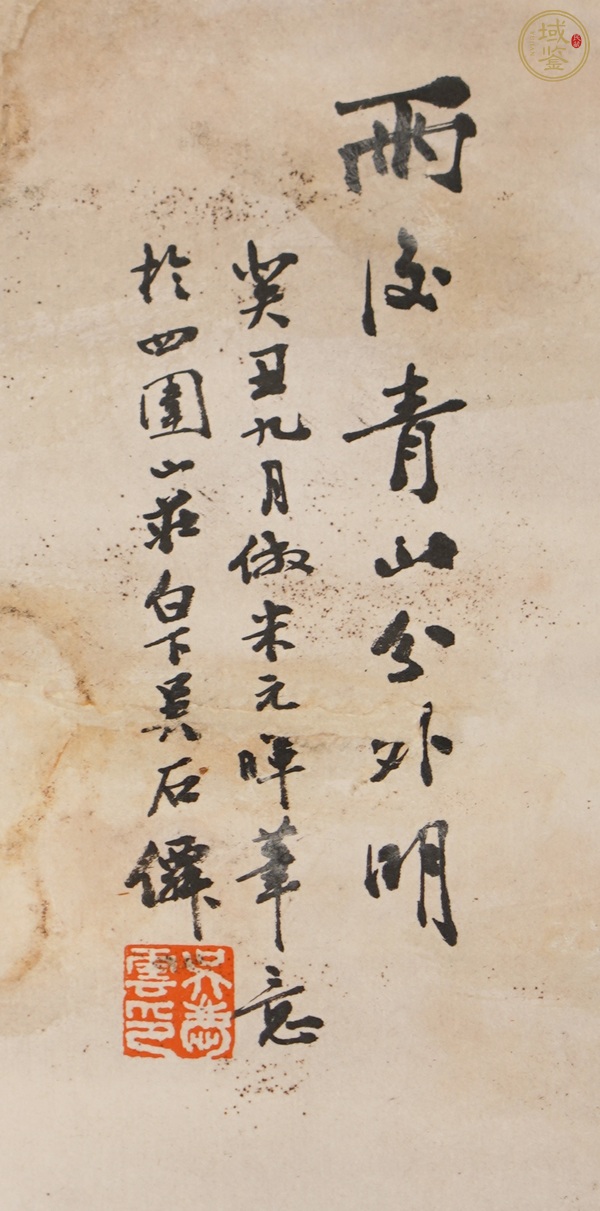 雨後青山分外明
癸丑九月倣米元暉筆意
於四圍山莊白下吳石僊
吳慶雲印
域鉴